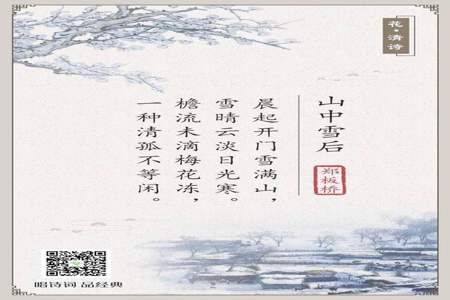 花·清诗
山中雪后
郑板桥
晨起开门雪满山，
雪晴云淡日光寒。
檐流未滴梅花冻，
一种清孤不等闲。
唱诗词 品经典